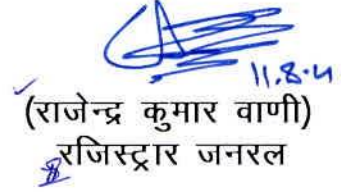 11.8.4
(राजेन्द्र कुमार वाणी)
रजिस्ट्रार जनरल